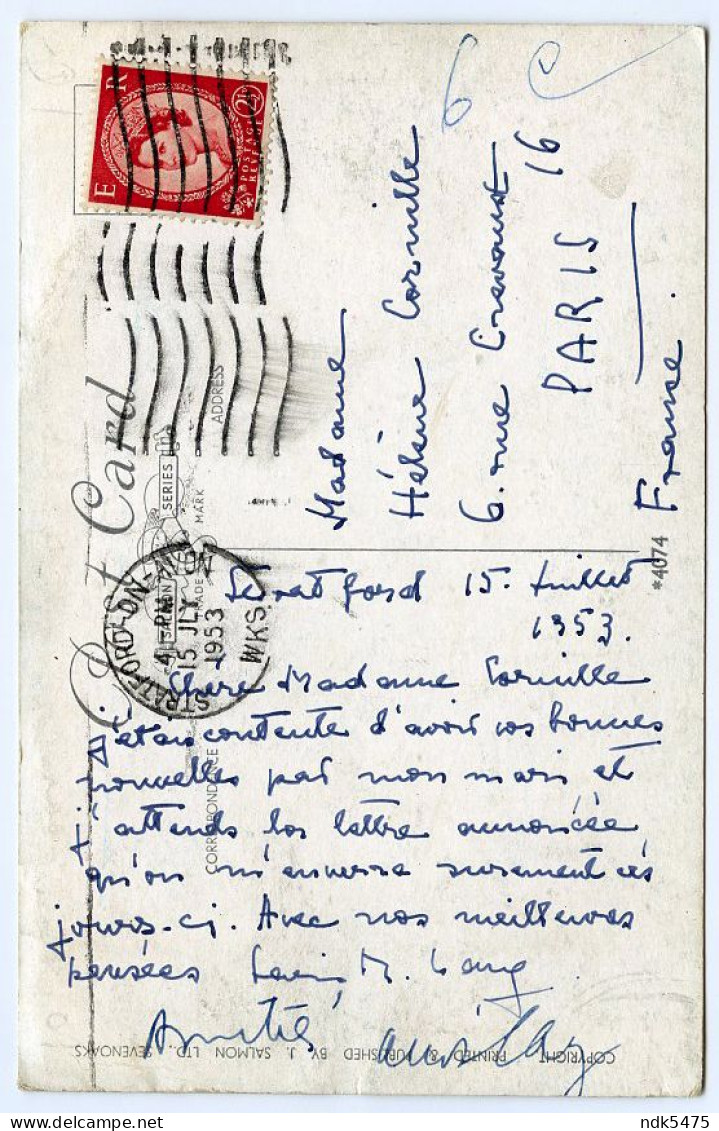 E R
POSTAGE
REVENUE
2½
Post Card
SALMON SERIES
TRADE MARK
ADDRESS
CORRESPONDENCE
STRATFORD-ON-AVON
4 PM
15 JLY
1953
WKS.
6
Madame
Hélène Corville
6. rue Crevaux
16
PARIS
France.
*4074
Stratford 15. Juillet
1953.
Chère Madame Corville
j'étais contente d'avoir vos bonnes
nouvelles par mon mari et
j'attends la lettre annoncée
qu'on m'enverra surement ces
jours-ci. Avec nos meilleures
pensées
Amitiés
COPYRIGHT PRINTED & PUBLISHED BY J. SALMON LTD., SEVENOAKS
ndk5475